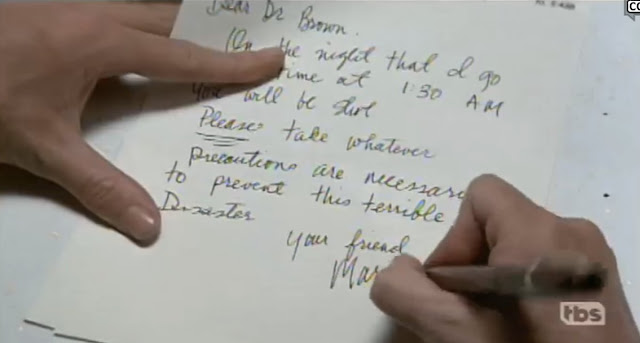 Dear Dr Brown.
On the night that I go
time at 1:30 AM
you will be shot
Please take whatever
precautions are necessar
to prevent this terrible
Disaster
your friend
Mar
tbs